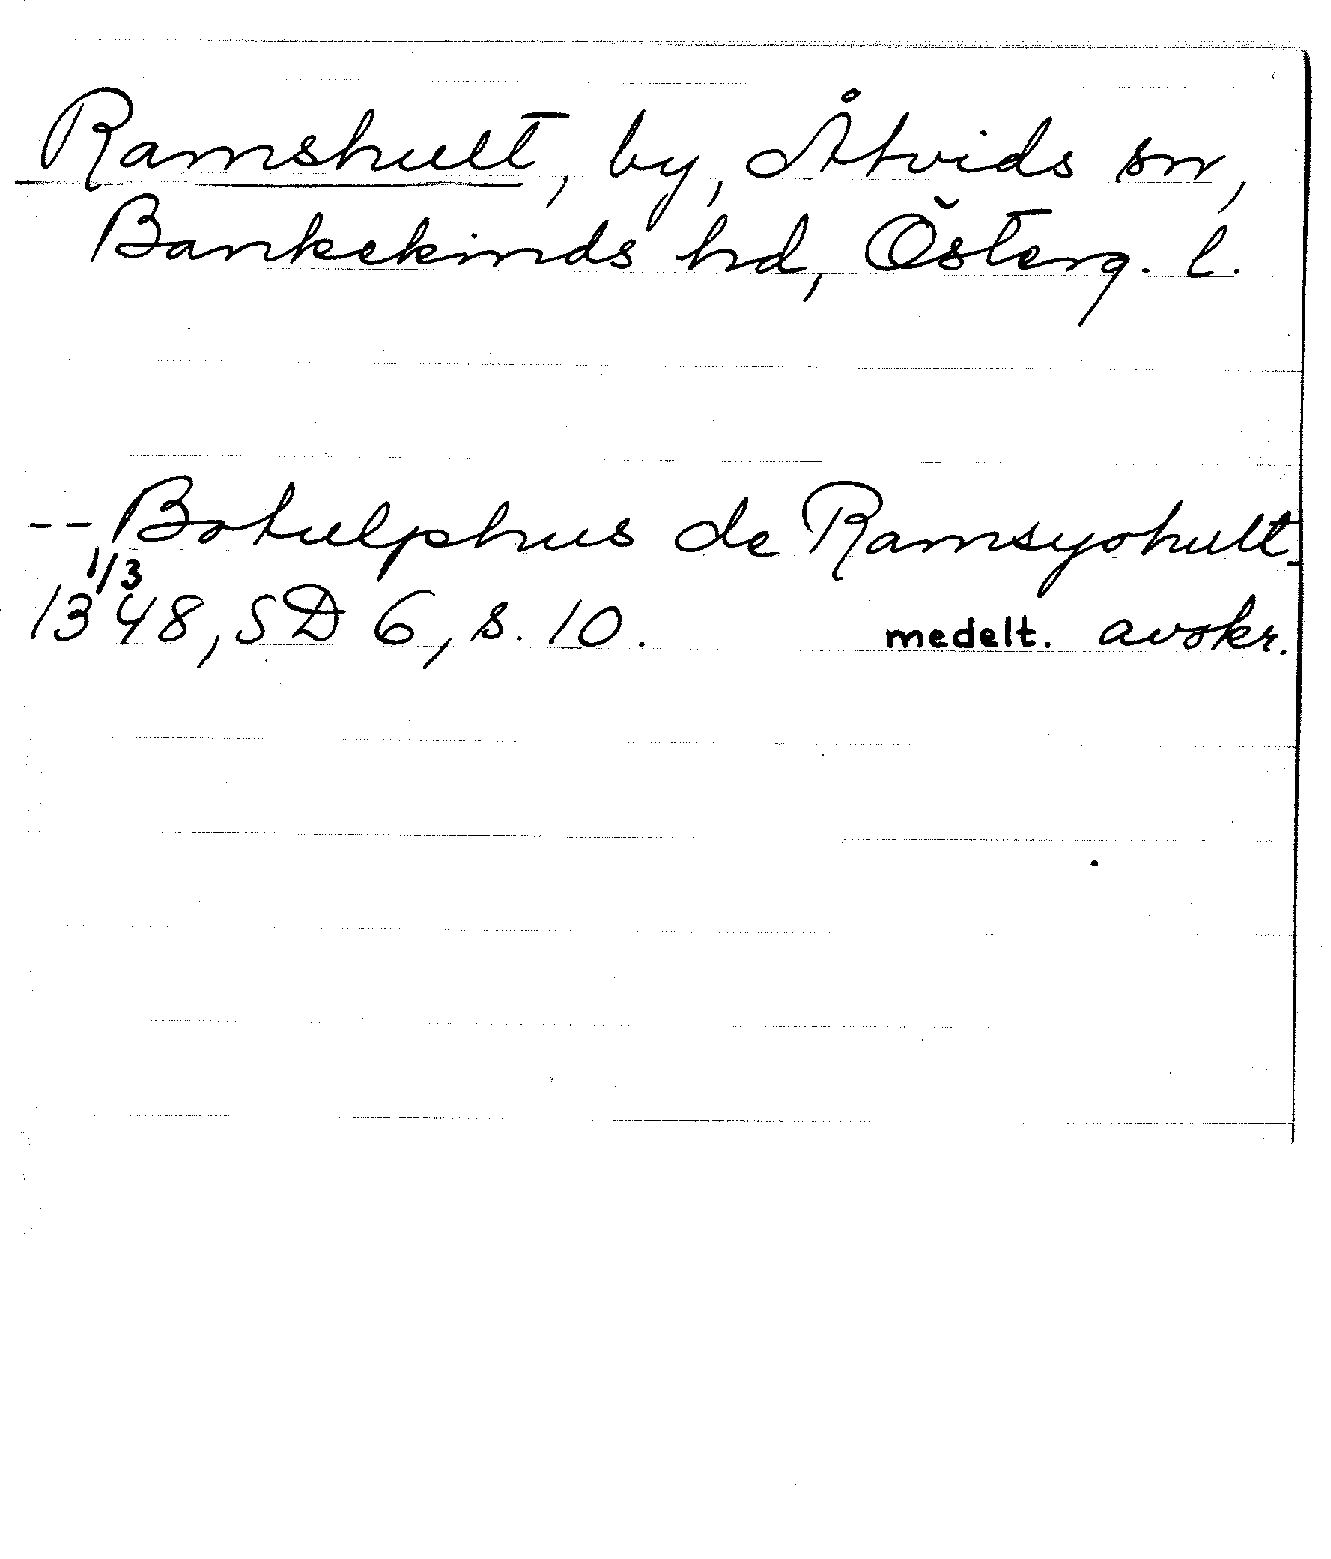 Ramshult, by, Åtvids sn,
Bankekinds hd, Österg. l.
-- Botulphus de Ramsyohult
1/3
1348, SD 6, s. 10. medelt. avskr.